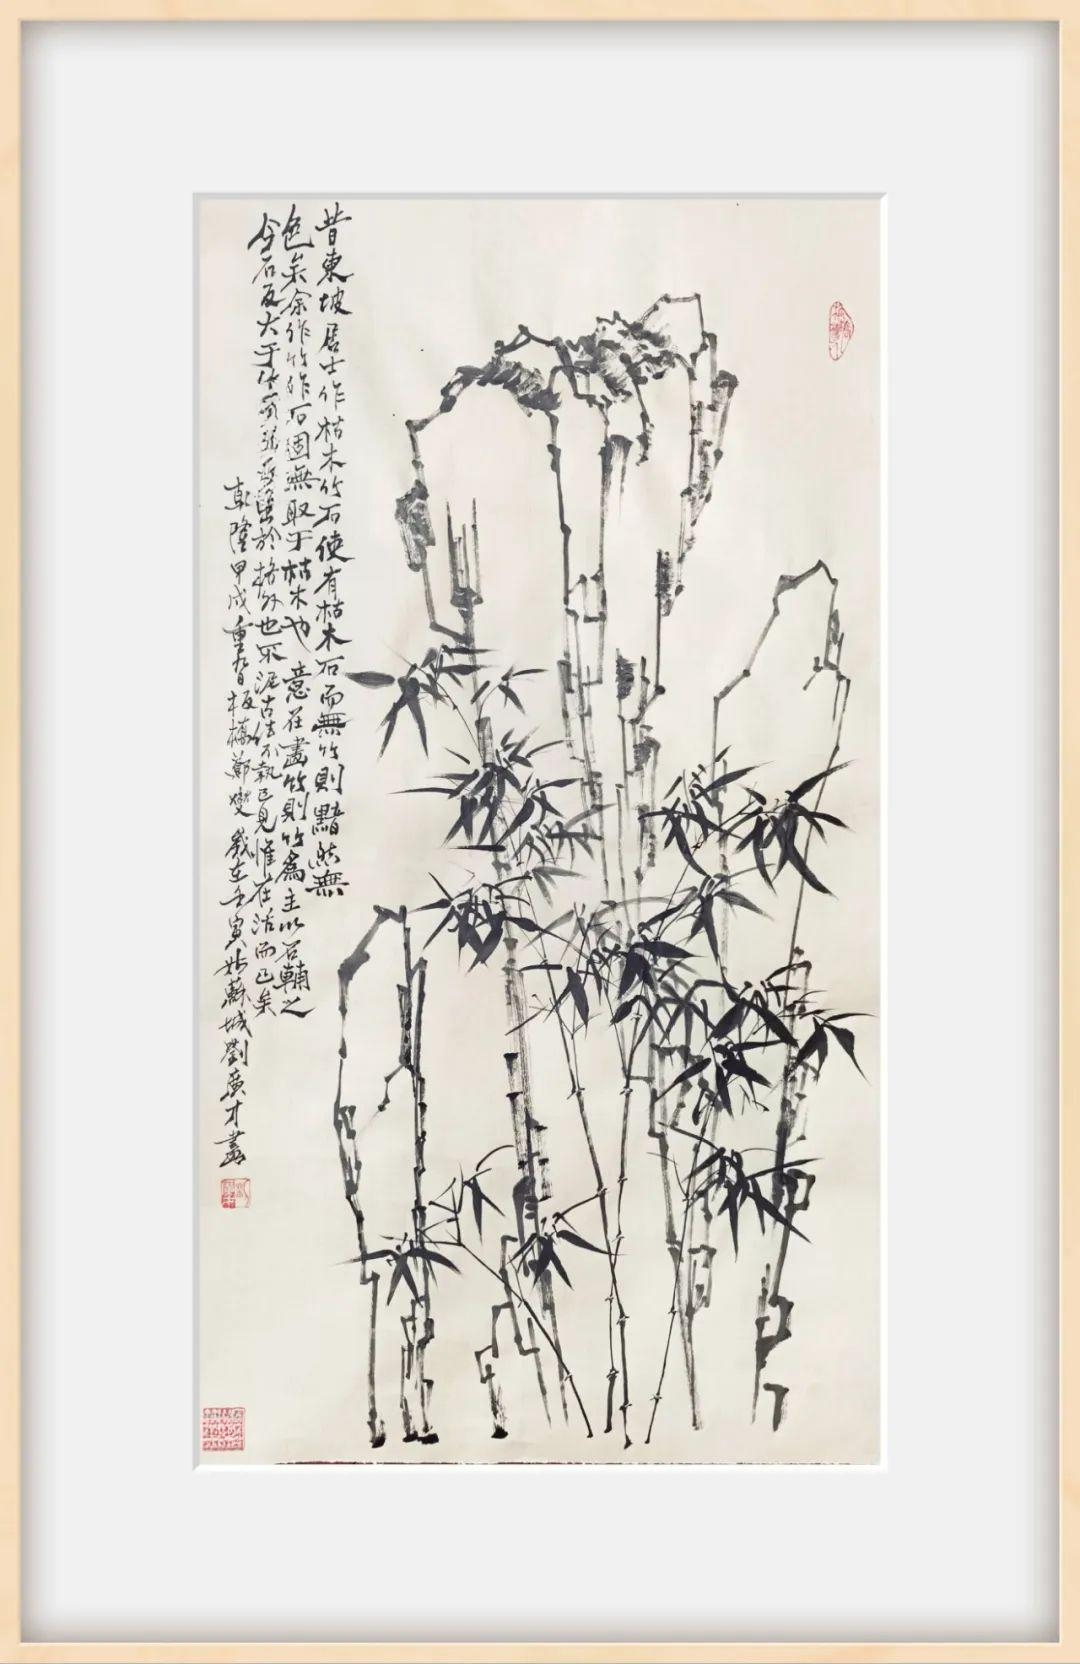 昔東坡居士作枯木竹石使有枯木石而無竹則黯然無
色矣余作竹作石固無取于枯木也意在畫竹則竹爲主以石輔之
今石反大于竹多于竹又出於格外也不泥古法不執己見惟在活而已矣
乾隆甲戌重九日板橋鄭燮歲在壬寅姑蘇城劉廣才畫